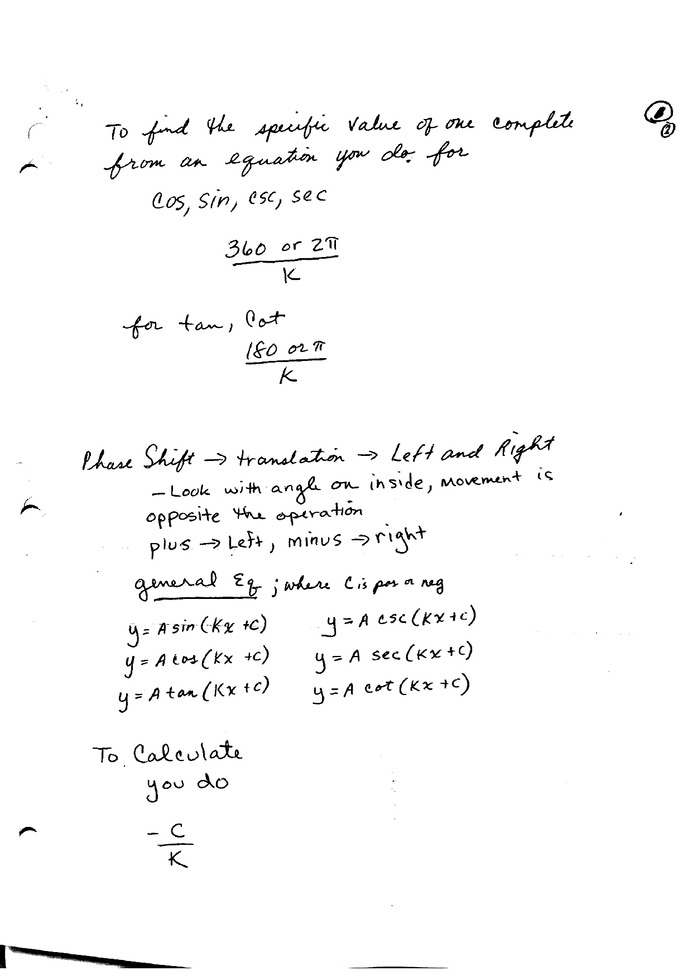 To find the specific value of one complete
from an equation you do. for
Cos, sin, csc, sec
360 or 2π
K
for tan, Cot
180 or π
K
Phase Shift → translation → Left and Right
- Look with angle on inside, movement is
opposite the operation
plus → Left, minus → right
general Eq ; where C is pos or neg
y = A sin (Kx + C) y = A csc (Kx + C)
y = A cos (Kx + C) y = A sec (Kx + C)
y = A tan (Kx + C) y = A cot (Kx + C)
To Calculate
you do
- C
K